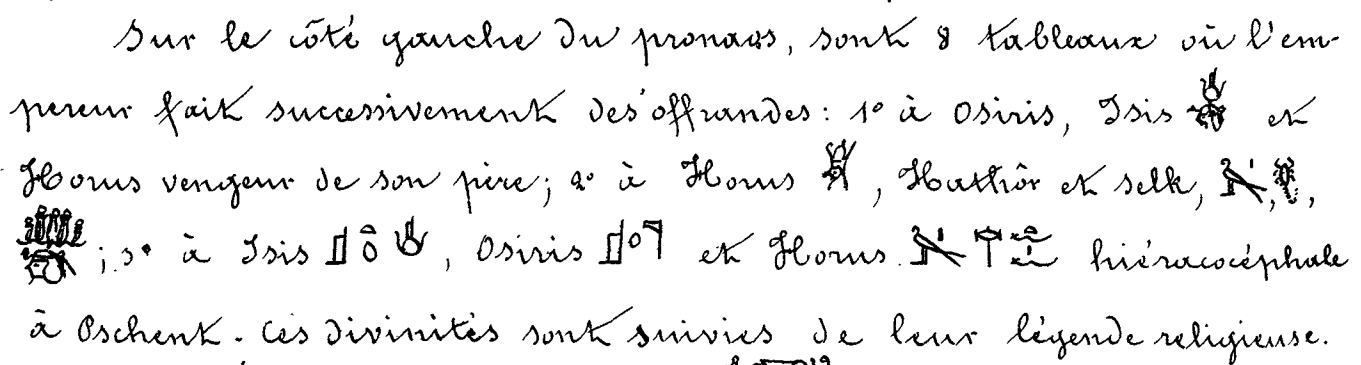 Sur le côté gauche du pronaos, sont 8 tableaux où l'em-
pereur fait successivement des offrandes: 1° à Osiris, Isis et
Horus vengeur de son père; 2° à Horus , Hathôr et Selk, , ,
; 3° à Isis , Osiris et Horus hiéracocéphale
à Pschent. Ces divinités sont suivies de leur légende religieuse.